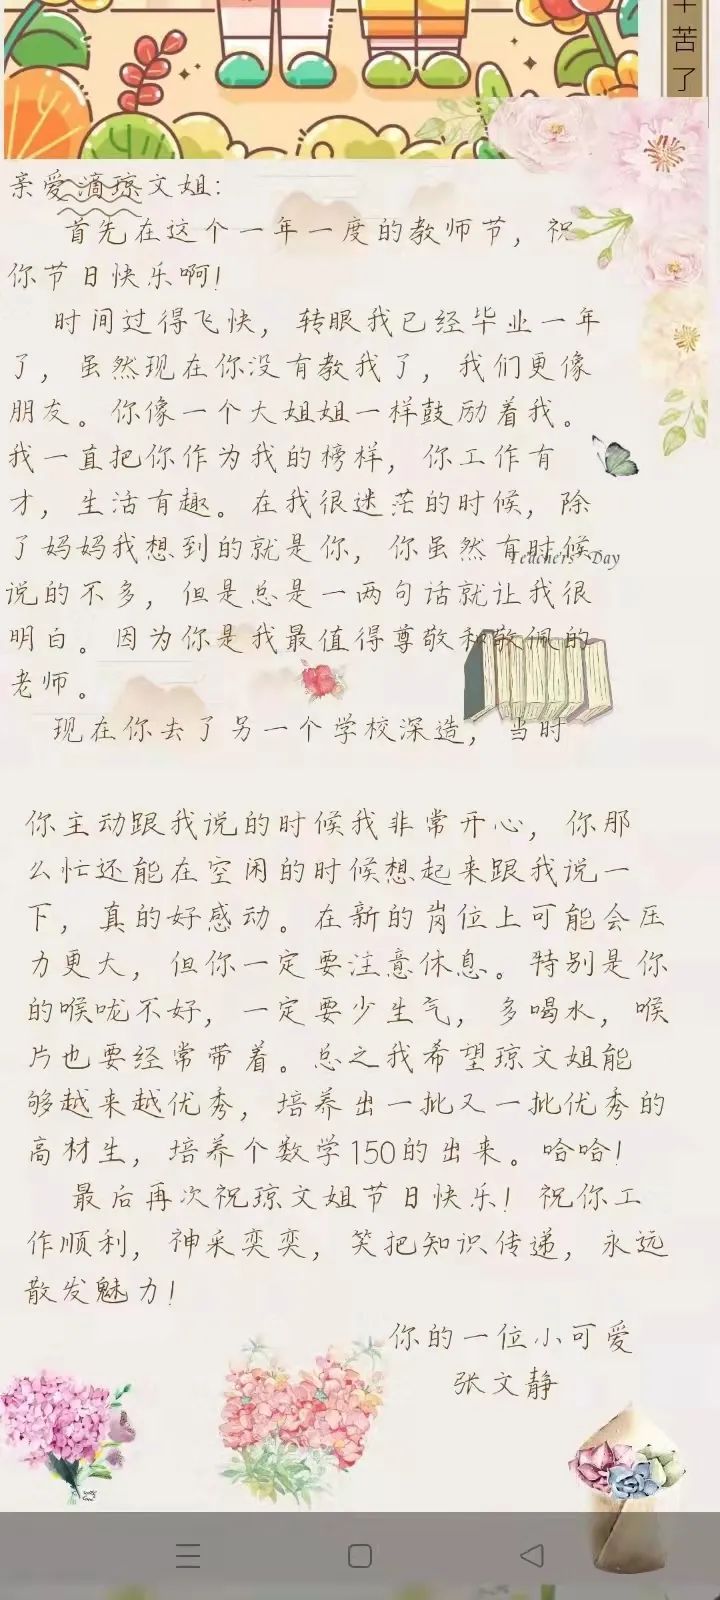 辛苦了
亲爱滴琼文姐:
首先在这个一年一度的教师节，祝
你节日快乐啊！
时间过得飞快，转眼我已经毕业一年
了，虽然现在你没有教我了，我们更像
朋友。你像一个大姐姐一样鼓励着我。
我一直把你作为我的榜样，你工作有
才，生活有趣。在我很迷茫的时候，除
了妈妈我想到的就是你，你虽然有时候
Teachers' Day
说的不多，但是总是一两句话就让我很
明白。因为你是我最值得尊敬和敬佩的
老师。
现在你去了另一个学校深造，当时
你主动跟我说的时候我非常开心，你那
么忙还能在空闲的时候想起来跟我说一
下，真的好感动。在新的岗位上可能会压
力更大，但你一定要注意休息。特别是你
的喉咙不好，一定要少生气，多喝水，喉
片也要经常带着。总之我希望琼文姐能
够越来越优秀，培养出一批又一批优秀的
高材生，培养个数学150的出来。哈哈！
最后再次祝琼文姐节日快乐！祝你工
作顺利，神采奕奕，笑把知识传递，永远
散发魅力！
你的一位小可爱
张文静